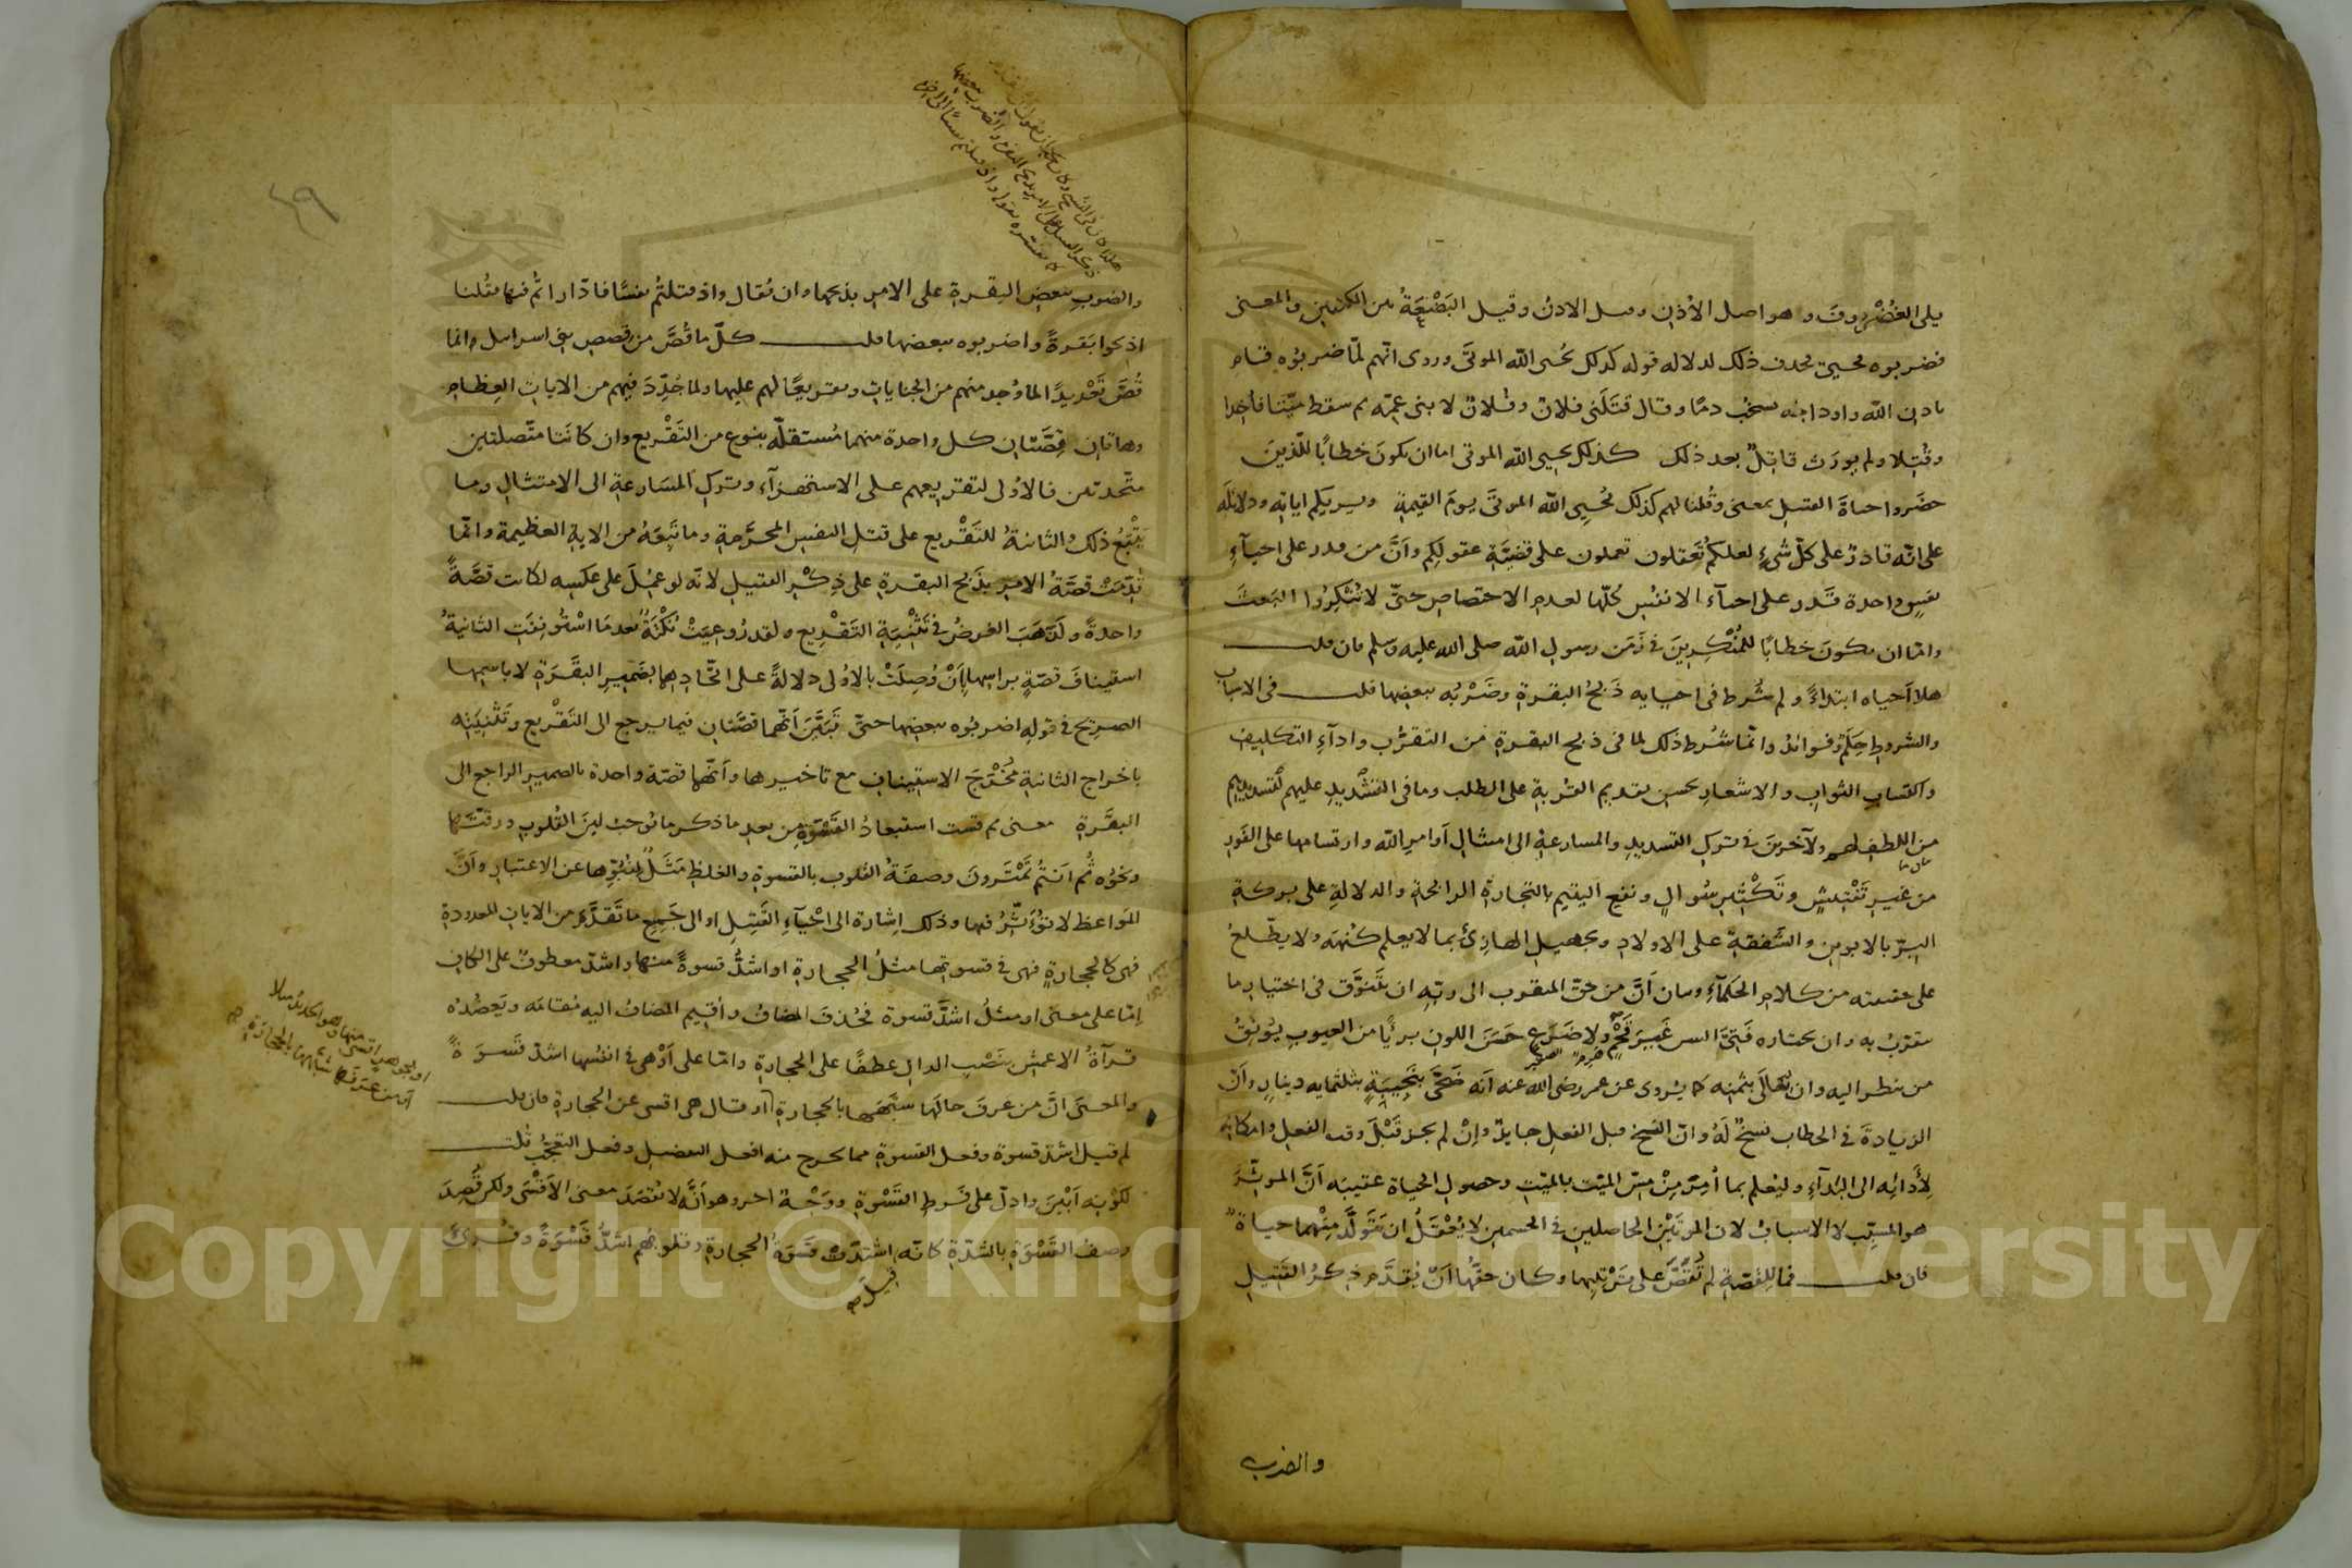 يلى الغضروف وهو اصل الأذن وميل الاذن وقيل البَضْعَةُ بين الكتفين والمعنى
فضربوه فحيى فحذف ذلك لدلاله قوله كذلك يحيى الله الموتى وروى انّهم لمّا ضربوه قام
باذن الله واوداجه تشخب دمًا وقال قتلَنى فلان وفلان لابنى عمّه ثم سقط ميّتا فاخِذا
وقُتِلا ولم يورَث قاتلٌ بعد ذلك كذلك يحيى الله الموتى اما ان يكون خطابًا للّذين
حضَروا حياة القتيل بمعنى وقُلنا لهم كذلك يُحيِى الله الموتَى يوم القيمة ويريكم اياته ودلائله
على انّه قادرٌ على كلّ شىءٍ لعلكم تَعقلون تعملون على قضيّة عقولِكم وأنَّ من قدر على احيآءِ
نفسٍ واحدة قَدر على احيآء الانفُس كُلّها لعدم الاختصاص حتّى لا تُنكِرُوا البَعثَ
وامّا ان يكون خطابًا للمُنْكِرِينَ فى زَمَن رسول الله صلى الله عليه وسلم فان قلت
هلا اَحياه ابتداءً ولم شُرط فى احيايه ذَبحُ البقرة وضَرْبُه ببعضها قلت فى الاسباب
والشروطِ حِكَمٌ وفوائد وانّما شُرط ذلك لما فى ذبح البقرة من التقرّب واداءِ التكليف
واكتساب الثواب والاشعارِ بحسن تقديم القُربةِ على الطلب وما فى التشديدِ عليهم لتشديدهم
من اللطف لهم ولآخرينَ فى تركِ التشديد والمسارعةِ الى امتثالِ اَوامرِ الله وارتسامها على الفَور
من غيرِ تَفْتيشٍ وتَكْثيرِ سُوالٍ ونفعِ اليتيم بالتجارة الرابحة والدلالةِ على بركةِ
البِرّ بالابوين والشَفقةِ على الاولاد وتجهيل الهازئ بما لا يعلم كُنهَه ولا يطّلعُ
على حقيقته من كلام الحكمآءِ وبيان اَنّ من حقّ المتقرب الى ربّه ان يتَنَوَّق فى اختيارِ ما
يتقرّبُ به وان يختاره فَتِىَّ السن غَيرَ قَحْمٍ ولا ضَرَعٍ حَسَنَ اللون بريًّا من العيوبِ يُونِقُ
من ينظر اليه وان يُغالِىَ بثمنِه كما يُروى عن عمر رضى الله عنه انّه ضَحّى بنَجيبَةٍ بثلثمايه دينارٍ وأنّ
الزيادةَ فى الخطاب نسخٌ لَهُ وانّ النسخ قبل الفعلِ جايزٌ وإنْ لم يجز قَبْلَ وقت الفعل وامكانِه
لِأَدائِه الى البَدآءِ وليُعلم بما اُمِرَ مِنْ مسّ الميّت بالميّت وحصولِ الحياة عقيبَه أنَّ الموثِّرَ
هو المسبّب لا الاسبابُ لان الموتَيْن الحاصلين فى الجسمين لا يُعْقَلُ ان يَتَولَّدَ مِنْهما حياةٌ
فان قلت فما للقصّة لم تُقَصَّ على تَرتيبها وكان حقُّها اَنْ يُقدَّم ذِكرُ القَتيلِ
والضرب
والضربِ ببعض البقرةِ على الامرِ بذبحها وان يُقال واذ قتلتُم نفسًا فادّاراتُم فيها فقُلنا
اذبحوا بَقرةً واضربوه ببعضها قلت كلّ ما قُصَّ من قَصصِ بنى اسرايل انما
قُصَّ تَعْديدًا لما وُجد منهم من الجنايات وتقريعًا لهم عليها ولما جُدِّدَ فيهم من الايات العِظام
وهاتان قِصَّتان كل واحدة منهما مُستقلّه بنوع من التَقْريع وان كانَتا متّصلتين
متّحدتين فالاولى لتقريعهم على الاستهزآء وتركِ المسَارعةِ الى الامتثالِ وما
يَتْبَعُ ذلك والثانيةُ للتَقْريع على قتلِ النفسِ المحرَّمةِ وما تَبِعَهُ من الايةِ العظيمةِ وانّما
قُدّمَتْ قصّةُ الامرِ بذَبحِ البقرةِ على ذِكْرِ القتيلِ لانّه لو عُمِلَ على عكسِه لكانت قصّةً
واحدةً ولَذَهَبَ الغرضُ فى تَثْنِيَةِ التَقْرِيع ولقد رُوعِيَتْ نُكْتَةٌ بعدَما اسْتُونِفَتِ الثانيةُ
استينافَ قصّةٍ براسها اَنْ وُصِلَتْ بالاُولى دلالةً على اتّحادِهما بضَميرِ البقَرَة لا باسمها
الصريح فى قولِه اضربُوه ببعضها حتىّ تَبَيّنَ اَنّهما قصَّتان فيما يرجع الى التَقْريع وتَثْنِيَتِه
باخراج الثانيةِ مُخْرَجَ الاستيناف مع تاخيرها واَنّها قصّة واحدة بالضمير الراجع الى
البقَرةِ معنى ثم قست استبعادُ القَسْوَةِ من بعدِ ما ذكر ما يُوجبُ لينَ القُلوبِ ورقّتَها
ونحوُه ثُم اَنتُم تَمْتَرونَ وصفَةُ القلوب بالقسوةِ والغِلظِ مَثَلٌ لِنُبُوِّها عن الاعتبارِ وأنَّ
المَواعظ لا تؤَثّرُ فيها وذلك اِشارة الى احْيآءِ القَتيلِ او الى جَميعِ ما تَقدَّم من الاياتِ المعدودةِ
فهى كالحجارةِ فهى فى قسوتها مثلُ الحجارةِ او اشدُّ قسوةً منها واشدّ معطوفٌ على الكافِ
اِمّا على معنى او مثلُ اشدَّ قسوة فحُذفَ المضافُ واُقيم المضافُ اليه مُقامَه ويَعضُدُه
قرآةُ الاعمش بنَصْبِ الدالِ عطفًا على الحجارةِ وامّا على أوْ هى فى انفُسها اشدّ قَسوَةً
والمعنَى انَّ من عرفَ حالَها شبَّهَها بالحجارةِ او قال هى اقسى من الحجارةِ فان قلت
لم قيل اشدّ قسوة وفعل القسوةِ مما يخرج منه افعل التفضيلِ وفعل التعَجّبِ قُلت
لكَوْنِه اَبْيَنَ وادلَّ على فَرطِ القَسْوةِ ووَجْهٌ اخر وهو اَنّه لا يُقصَدَ معنى الاَقْسَى ولكن قُصِدَ
وصفُ القَسْوَةِ بالشدّةِ كانّه قيل اشتدّت قَسْوَةُ الحجارةِ وقلوبهم اشدُّ قَسْوَةً وقُرِئَ
Copyright © King Saud University